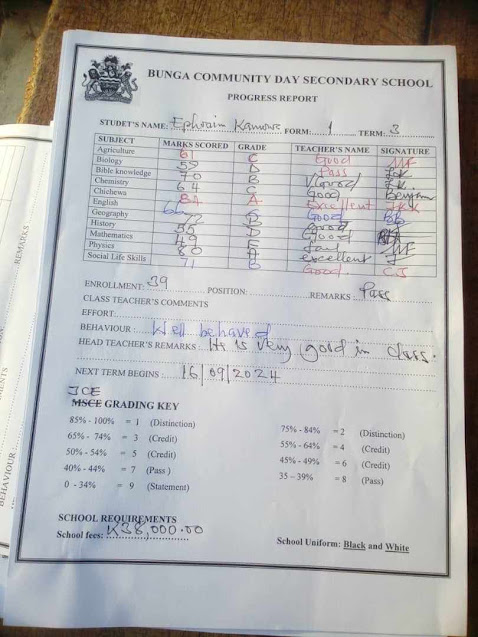 BUNGA COMMUNITY DAY SECONDARY SCHOOL
PROGRESS REPORT
STUDET'S NAME: Ephraim FORM: 1 TERM: 3
SUBJECT MARKS SCORED GRADE TEACHER'S NAME SIGNATURE
Agriculture 61 C Good
Biology 59 D Pass
Bible knowledge 70 B V.Good
Chemistry 64 C Good
Chichewa 84 A Excellent
English 66 Good BB
Geography 72 B Good
History 55 D Good
Mathematics 49 E
Physics 80 A excellent
Social Life Skills 71 B Good CJ
ENROLLMENT: 39 POSITION: REMARKS: Pass
CLASS TEACHER'S COMMENTS
EFFORT:
BEHAVIOUR: Well behaved
HEAD TEACHER'S REMARKS: He is very good in class.
NEXT TERM BEGINS: 16/09/2024
JCE
MSCE GRADING KEY
85% - 100% = 1 (Distinction) 75% - 84% = 2 (Distinction)
65% - 74% = 3 (Credit) 55% - 64% = 4 (Credit)
50% - 54% = 5 (Credit) 45% - 49% = 6 (Credit)
40% - 44% = 7 (Pass ) 35 – 39% = 8 (Pass)
0 - 34% = 9 (Statement)
SCHOOL REQUIREMENTS
School fees: K38,000.00 School Uniform: Black and White
REMARKS
BEHAVIOUR